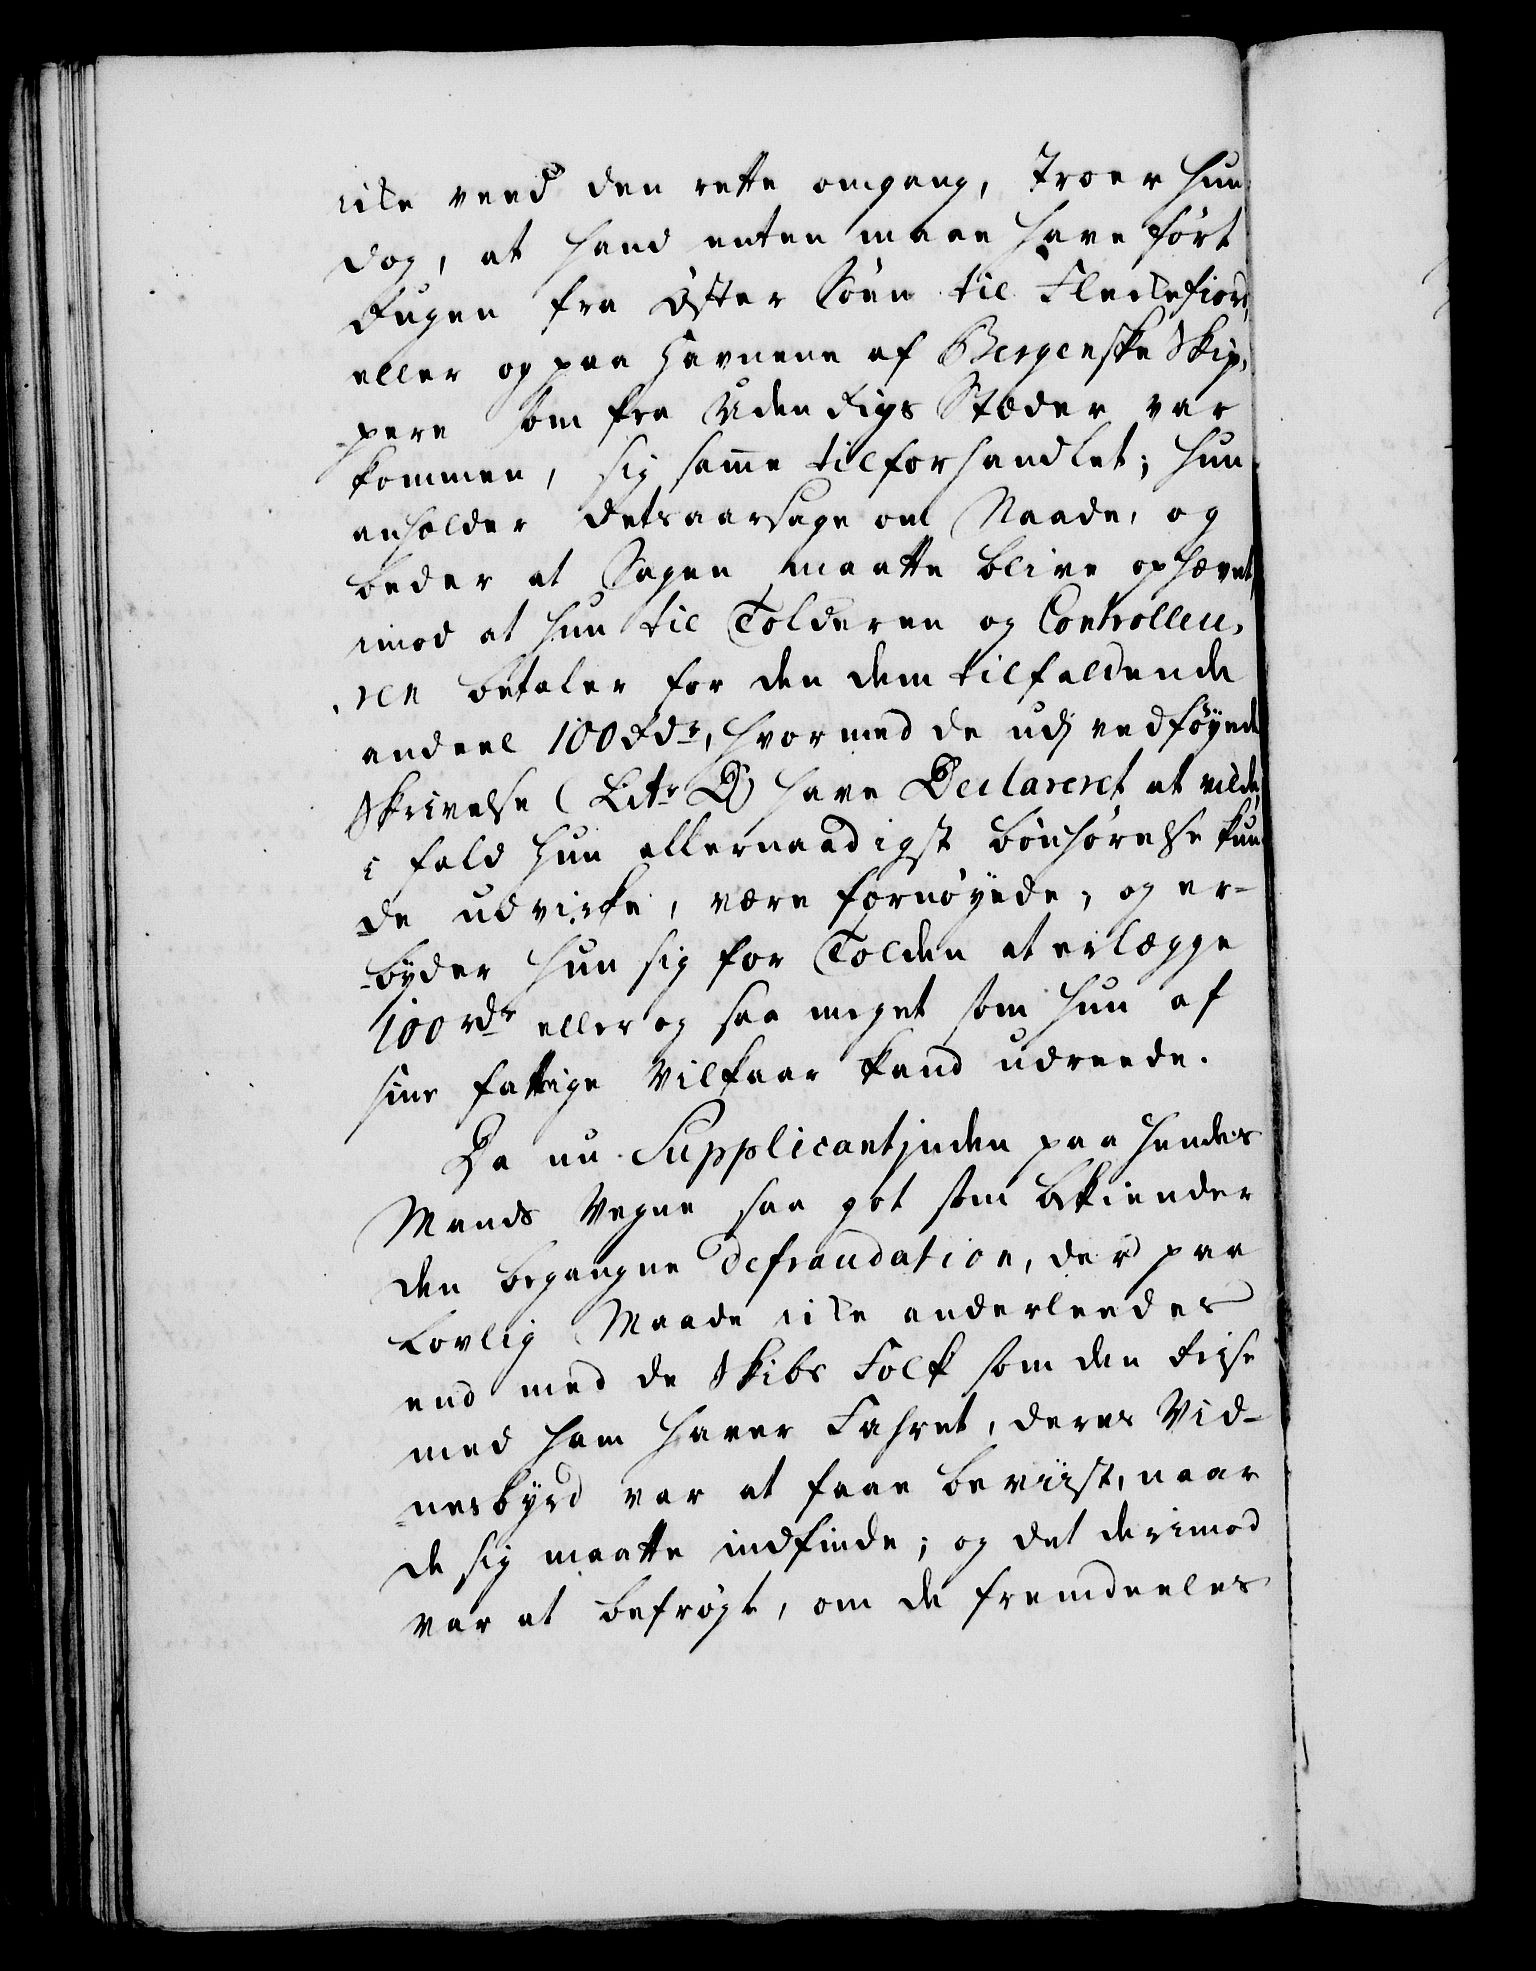 icke veed den rette omgang, troer hun
dog, at hand enten maae have ført
Rugen fra Øster Søen til Fleckefiord,
eller og paa Havnene af Bergenske Skip,
pere som fra Udenrigs Stæder var
kommen, sig samme tilforhandlet; hun
anholder dets aarsage om Naade, og
beder at Sagen maatte blive ophævet,
imod at hun til Tolderen og Controlleu,
,ren betaler for den dem tilfaldende
andeel 100 Rdr, hvormed de udj vedføyede
Skrivelse (Litr D) have Declareret at vilde,
i fald hun allernaadigst bønhørelse kun
de udvirke, være fornøyede, og er-
-byder hun sig for Tolden at erlægge
100 rdr eller og saa meget som hun af
sine fattige Vilkaar kand udreede.
Da nu Supplicantinden paa hendes
Mands Vegne saa got som bekiender
den begangne defraudation, der paa
Lovlig Maade icke anderleedes
end med de Skibs Folk som den Reyse
med ham haver Fahret, deres Vid-
-nesbyrd var at faae beviist, naar
de sig maatte indfinde; og det derimod
var at befrøgte, om de fremdeeles